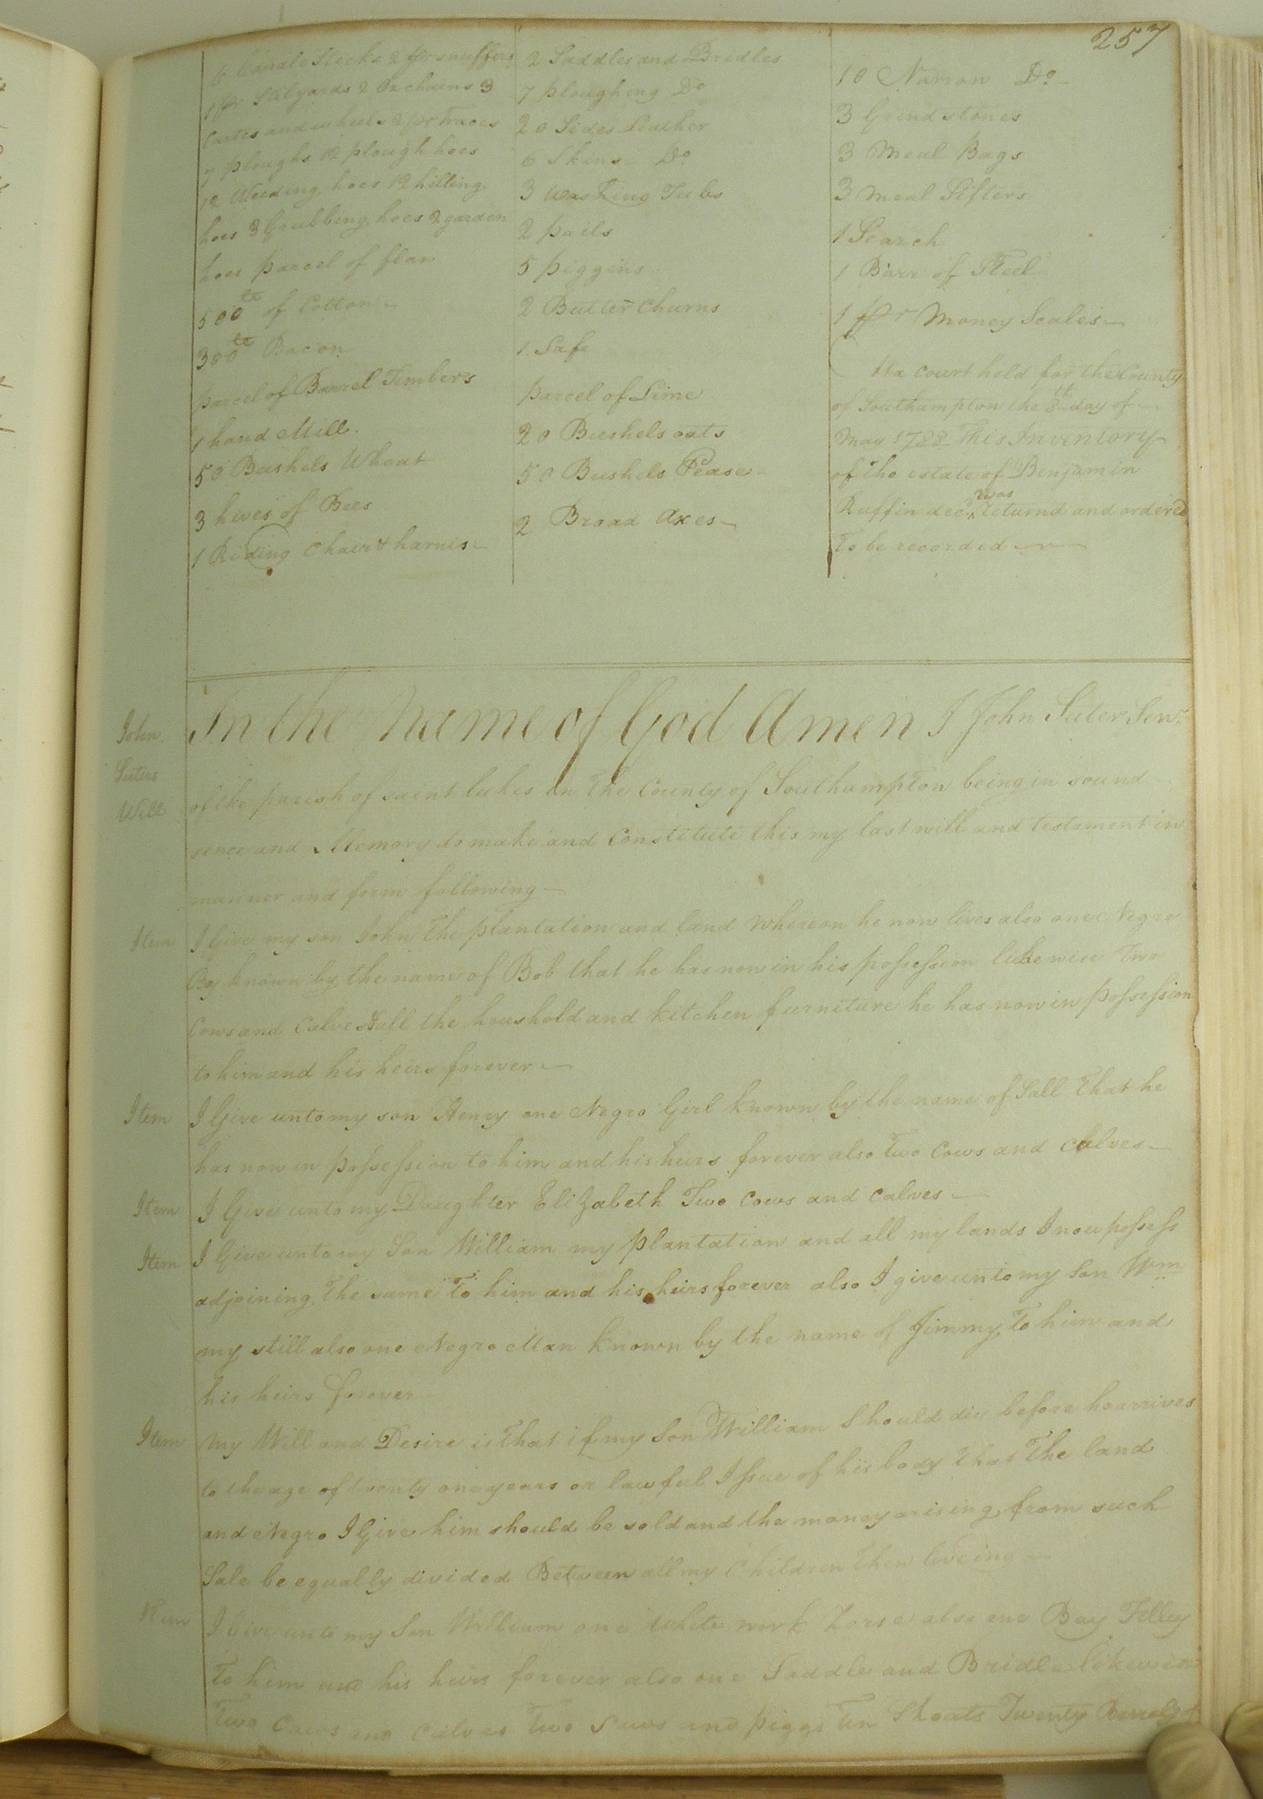 257
6 Candle Sticks 2 pr snuffers
1 pr Stilyards 2 Ox chains 3
Carts and wheels 2 pr Traces
7 ploughs 12 plough hoes
12 Weeding hoes 12 hilling
hoes 3 Grubbing hoes 2 garden
hoes parcel of flax
500 lb of Cotton
300 lb Bacon
parcel of Barrel Timbers
1 hand Mill
50 Bushels Wheat
3 hives of Bees
1 Riding Chair & harnis
2 Saddles and Bridles
7 ploughing Do
20 Sides Leather
6 Skins Do
3 Washing Tubs
2 pails
5 piggins
2 Butter Churns
1 Safe
parcel of Lime
20 Bushels oats
50 Bushels Pease
2 Broad Axes
10 Narrow Do
3 Grindstones
3 Meal Bags
3 Meal Sifters
1 Search
1 Barr of Steel
1 pr Money Scales
At a court held for the County
of Southampton the 8th day of
May 1788 This Inventory
of the estate of Benjamin
Ruffin decd was returnd and ordered
To be recorded
John
Suters
Will
In the Name of God Amen I John Suter Senr
of the parish of saint lukes in The County of Southampton being in sound
sence and Memory do make and Constitute this my last will and testament in
manner and form following
Item I Give my son John The plantation and land whereon he now lives also one Negro
Boy known by the name of Bob that he has now in his possession likewise Two
Cows and Calves & all the houshold and kitchen furniture he has now in possession
to him and his heirs forever
Item I Give unto my son Henry one Negro Girl known by the name of Sall That he
has now in possession to him and his heirs forever also Two Cows and Calves
Item I Give unto my Daughter Elizabeth Two Cows and Calves
Item I Give unto my Son William my plantation and all my lands I now possess
adjoining The same To him and his heirs forever also I give unto my Son Wm
my still also one Negro Man known by the name of Jimmy To him and
his heirs forever
Item My Will and Desire is That if my Son William Should die before he arrives
to the age of twenty one years or lawful Issue of his body That The land
and Negro I Give him should be sold and the money arising from such
Sale be equally divided Between all my Children then liveing
Item I Give unto my Son William one white work horse also one Bay Filley
To him and his heirs forever also one Saddle and Bridle likewise
Two Cows and Calves Two Sows and piggs Ten Shoats Twenty Barrels of